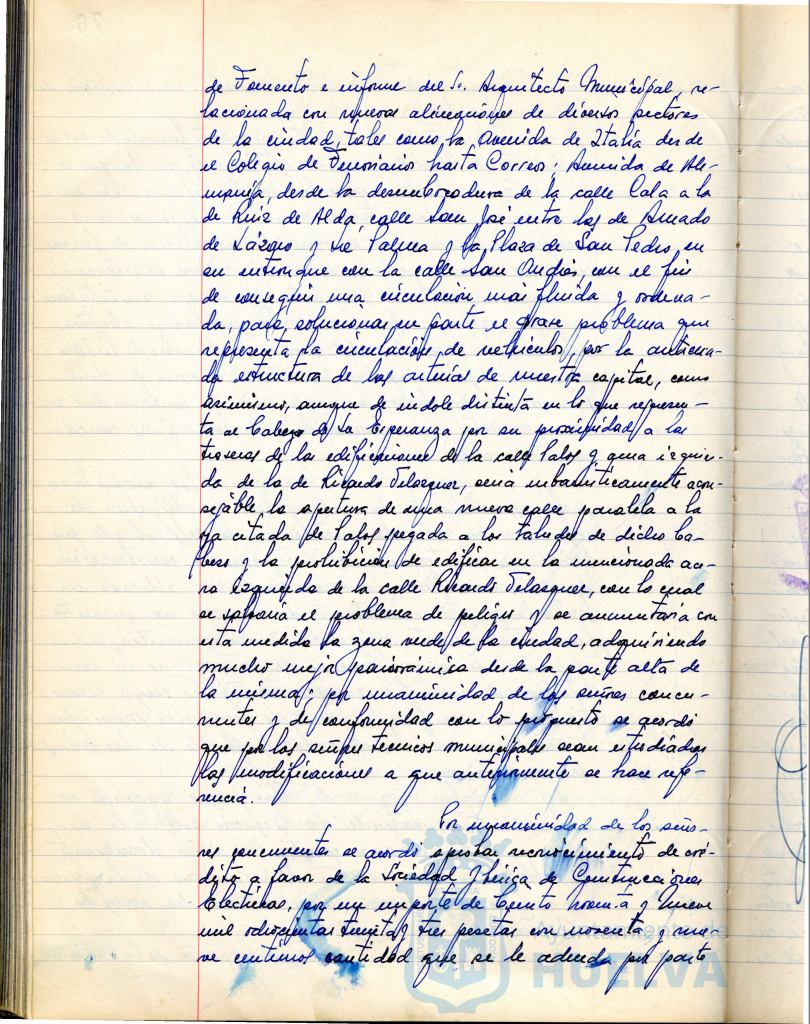 de Fomento e informe del Sr. Arquitecto Municipal, re-
lacionada con nuevas alineaciones de diversos sectores
de la ciudad, tales como la Avenida de Italia desde
el Colegio de Ferroviarios hasta Correos; Avenida de Ale-
mania, desde la desembocadura de la calle Cala a la
de Ruiz de Alda, calle San José entre las de Amado
de Lázaro y La Palma y la Plaza de San Pedro, en
su entronque con la calle San Andrés, con el fin
de conseguir una circulación más fluida y ordena-
da, para solucionar en parte el grave problema que
representa la circulación de vehículos, por la anticua-
da estructura de las arterias de nuestra capital, como
asimismo, aunque de índole distinta en lo que represen-
ta el Cabezo de La Esperanza por su proximidad a las
traseras de las edificaciones de la calle Palos y acera izquier-
da de la de Ricardo Velazquez, sería urbanísticamente acon-
sejable la apertura de una nueva calle paralela a la
ya citada de Palos pegada a los taludes de dicho Ca-
bezo y la prohibición de edificar en la mencionada ace-
ra izquierda de la calle Ricardo Velazquez, con lo cual
se salvaría el problema de peligro y se aumentaría con
esta medida la zona verde de la ciudad, adquiriendo
mucho mejor panorámica desde la parte alta de
la misma; por unanimidad de los señores concu-
rrentes y de conformidad con lo propuesto se acordó
que por los señores técnicos municipales sean estudiadas
las modificaciones a que anteriormente se hace refe-
rencia.
Por unanimidad de los seño-
res concurrentes se acordó aprobar reconocimiento de cré-
dito a favor de la Sociedad Ibérica de Construcciones
Eléctricas, por un importe de Ciento noventa y nueve
mil ochocientas treinta y tres pesetas con noventa y nue-
ve centimos cantidad que se le adeuda por parte
Ayuntamiento de
HUELVA